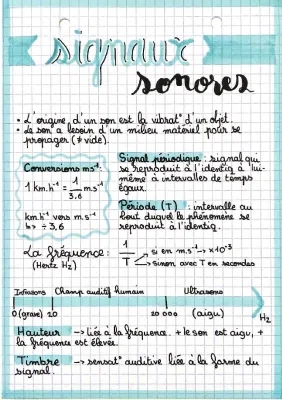 signaux
sonores
• L'origine d'un son est la vibrat° d'un objet.
• Le son a besoin d'un milieu matériel pour se
propager (≠ vide).
Conversions ms⁻¹:
1 Km.h⁻¹ = 1/3,6 m.s⁻¹
km.h⁻¹ vers m.s⁻¹
↳ ÷ 3,6
Signal périodique : signal qui
se reproduit à l'identiq à lui-
même à intervalles de temps
égaux.
Période (T) : intervalle au
bout duquel le phénomène se
reproduit à l'identiq.
La fréquence : 1/T
(Hertz Hz)
→ si en m.s⁻¹ → x10⁻³
→ sinon avec T en secondes
Infrasons Champ auditif humain Ultrasons
0 (grave) 20 20 000 (aigu) Hz
Hauteur → liée à la fréquence. + le son est aigu, +
la fréquence est élevée.
Timbre → sensat° auditive liée à la forme du
signal.